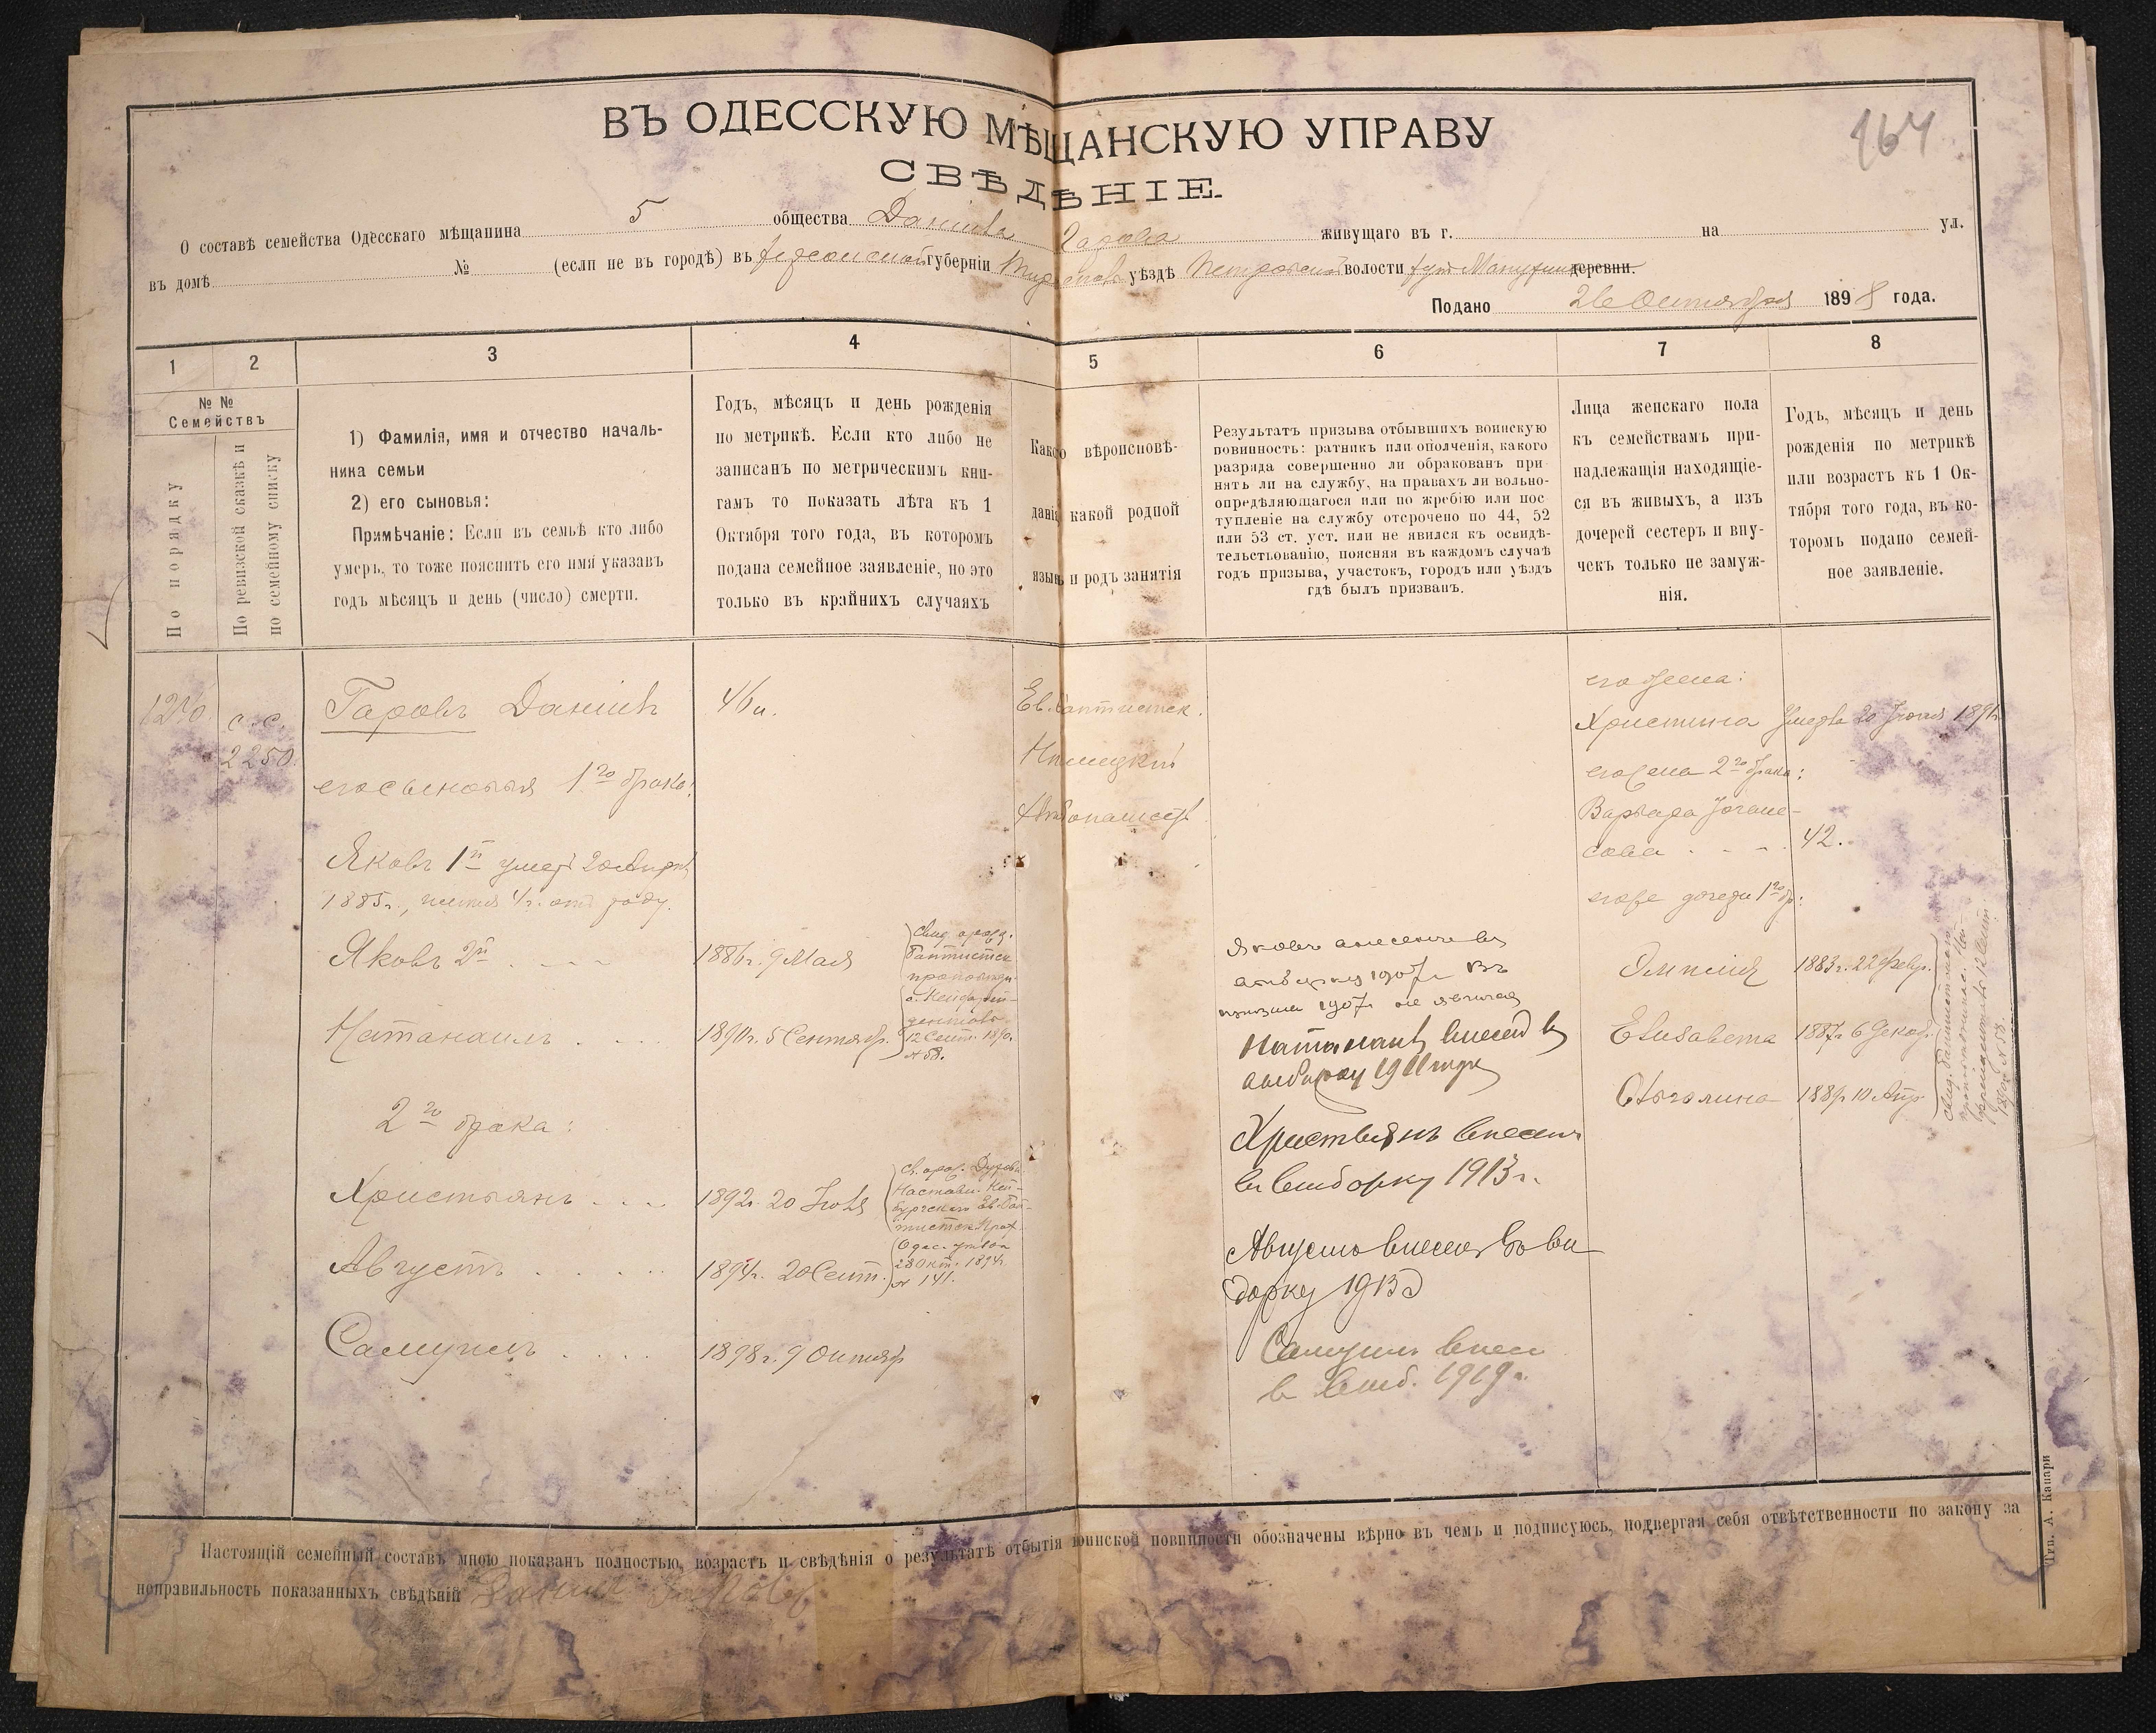 164
ВЪ ОДЕССКУЮ МѢЩАНСКУЮ УПРАВУ
СВѢДѢНІЕ.
О составѣ семейства Одесскаго мѣщанина 5 общества Даніила Гарова живущаго въ г. на ул.
въ домѣ № (если не въ городѣ) въ Херсонской губерніи уѣздѣ Петровской волости хут. деревни.
Подано 26 Октября 1898 года.
1 2 3 4 5 6 7 8
№ №
Семействъ
По порядку
По ревизской сказкѣ и
по семейному списку
1) Фамилія, имя и отчество началь-
ника семьи
2) его сыновья:
Примѣчаніе: Если въ семьѣ кто либо
умеръ, то тоже пояснить его имя указавъ
годъ мѣсяцъ и день (число) смерти.
Годъ, мѣсяцъ и день рожденія
по метрикѣ. Если кто либо не
записанъ по метрическимъ кни-
гамъ то показать лѣта къ 1
Октября того года, въ которомъ
подана семейное заявленіе, но это
только въ крайнихъ случаяхъ
Какого вѣроисповѣ-
данія какой родной
языкъ и родъ занятія
Результатъ призыва отбывшихъ воинскую
повинность: ратникъ или ополченія, какого
разряда совершенно ли обракованъ при-
нятъ ли на службу, на правахъ ли вольно-
опредѣляющагося или по жребію или пос-
тупленіе на службу отсрочено по 44, 52
или 53 ст. уст. или не явился къ освидѣ-
тельствованію, поясняя въ каждомъ случаѣ
годъ призыва, участокъ, городъ или уѣздъ
гдѣ былъ призванъ.
Лица женскаго пола
къ семействамъ при-
надлежащія находящіе-
ся въ живыхъ, а изъ
дочерей сестеръ и вну-
чекъ только не замуж-
нія.
Годъ, мѣсяцъ и день
рожденія по метрикѣ
или возрастъ къ 1 Ок-
тября того года, въ ко-
торомъ подано семей-
ное заявленіе.
1240. с.с.
2250.
Гаровъ Даніилъ 46 л.
его сыновья 1го брака:
Яковъ 1й умеръ 20 Апрѣля
1885 г., имѣя 4 г. отъ роду.
Яковъ 2й 1886 г. 9 Мая
Натанаилъ 1890 г. 5 Сентябр.
Свид.
баптистск
12 Сент. 1890.
№ 58.
2го брака:
Христьянъ 1892 г. 20 Іюля
Августъ 1894 г. 20 Сент.
28 Окт. 1894 г.
№ 141.
Самуилъ 1898 г. 9 Октябр
Ев. баптистск.
Нѣмецкій
Хлѣбопашест
Яковъ внесенъ въ
выборку 1907 г. Въ
1907 г. не явился
Натанаилъ внесенъ въ
выборку 1911 года
Христьянъ внесенъ
въ выборку 1913 г.
Августъ внесенъ въ вы
борку 1915
Самуилъ внес
в выб. 1919 г.
его жена:
Христина умерла 20 Іюля 1891 г.
его жена 2го брака:
Варвара Іогане-
сова 42.
его же дочери 1го бр:
Эмилія 1883 г. 22 Февр.
Елисавета 1887 г. 6 Декаб.
Отталина 1889 г. 10 Апр.
12 Сент.
1890 г. № 58.
Настоящій семейный составъ мною показанъ полностью, возрастъ и свѣдѣнія о результатѣ отбытія воинской повинности обозначены вѣрно въ чемъ и подписуюсь, подвергая себя отвѣтственности по закону за
неправильность показанныхъ свѣдѣній
Тип. А. Капари